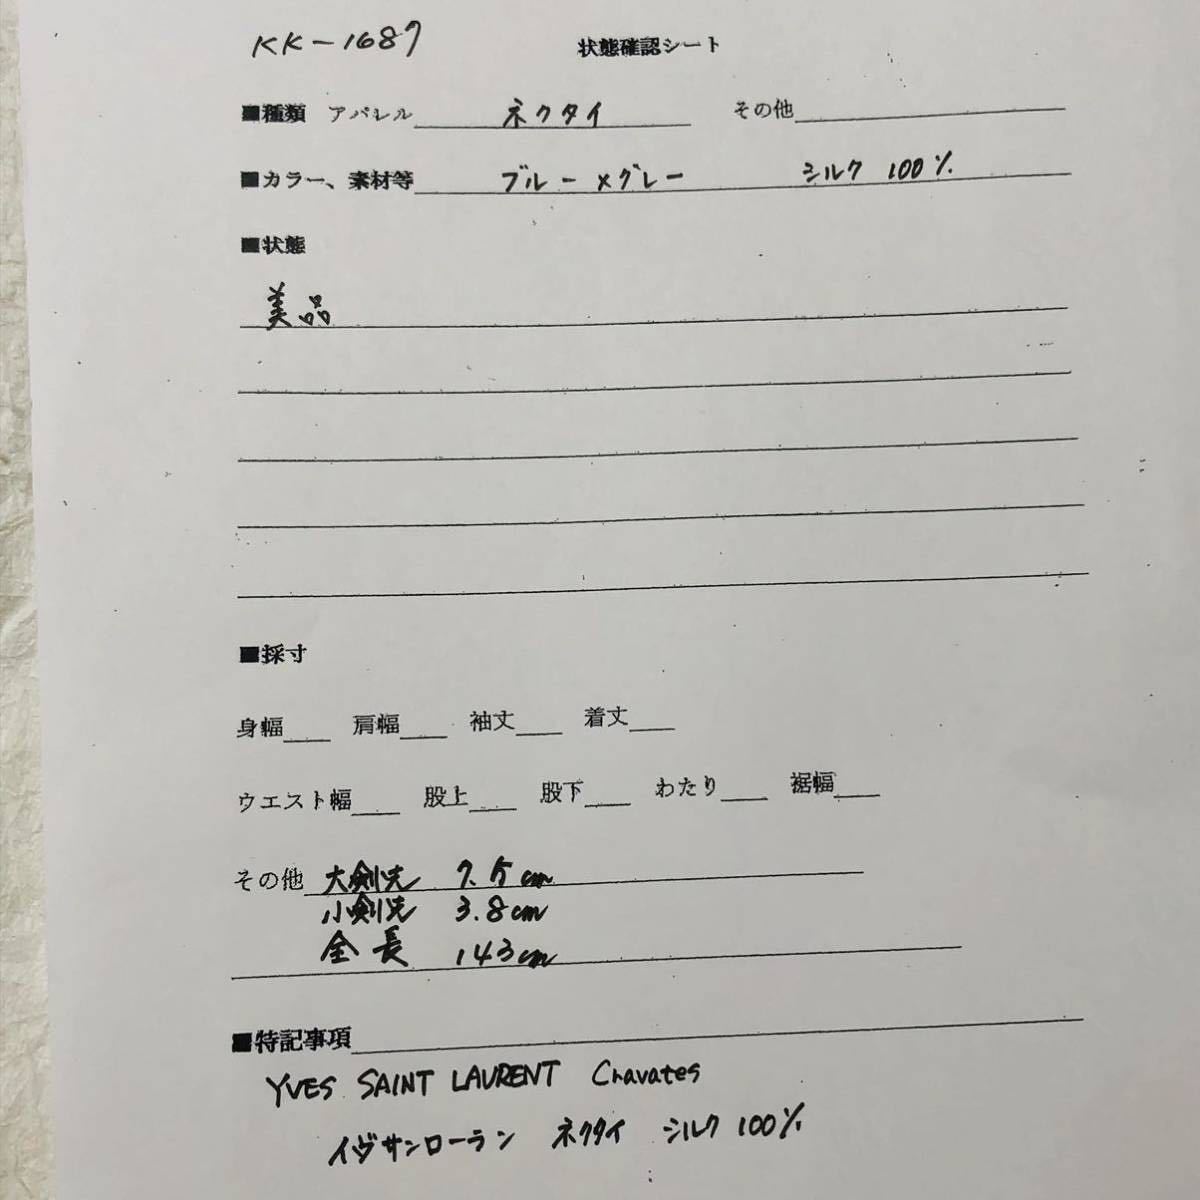 KK-1687 状態確認シート
■種類 アパレル ネクタイ その他
■カラー、素材等 ブルー×グレー シルク 100%
■状態
美品
■採寸
身幅 肩幅 袖丈 着丈
ウエスト幅 股上 股下 わたり 裾幅
その他 大剣先 7.5cm
小剣先 3.8cm
全長 143cm
■特記事項
YVES SAINT LAURENT Cravates
イヴサンローラン ネクタイ シルク 100%